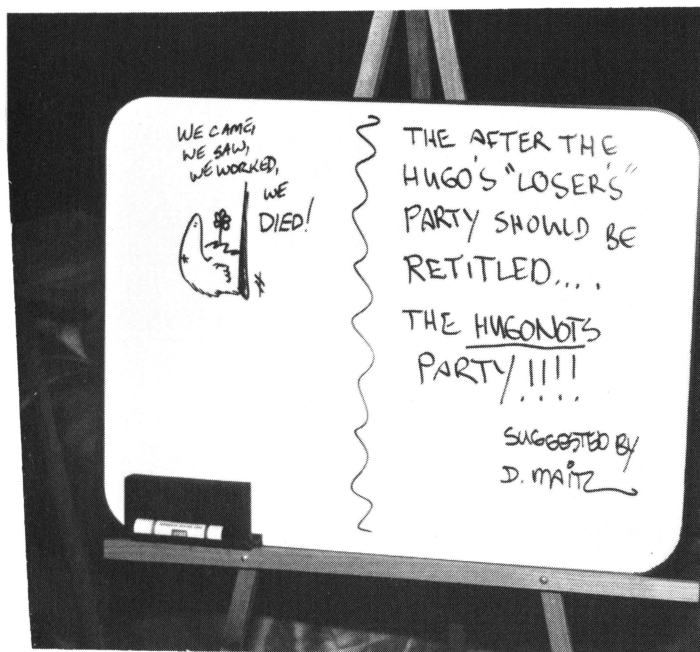 WE CAME,
WE SAW,
WE WORKED,
WE
DIED!
THE AFTER THE
HUGO'S "LOSER'S"
PARTY SHOULD BE
RETITLED....
THE HUGONOTS
PARTY!!!!
SUGGESTED BY
D. MAITZ